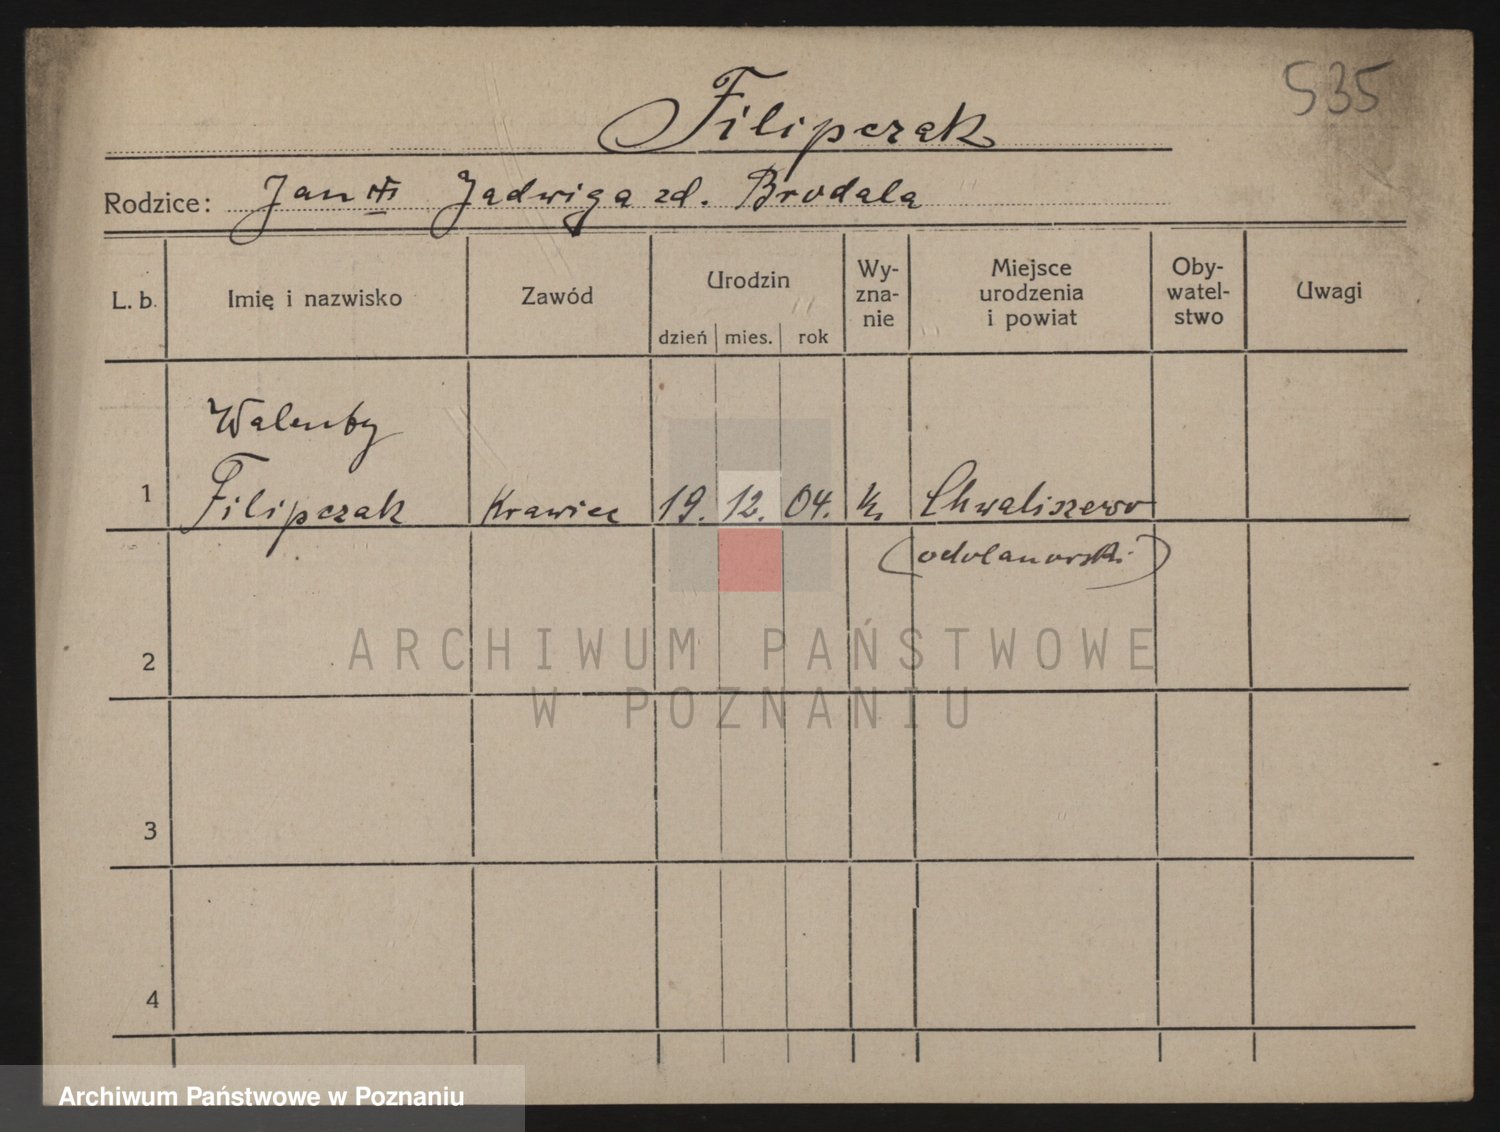 535
Filipczak
Rodzice: Jan Jadwiga zd. Brodala
L. b. Imię i nazwisko Zawód Urodzin dzień mies. rok Wy-zna-nie Miejsce urodzenia i powiat Oby-watel-stwo Uwagi
Walenty
1 Filipczak Krawiec 19. 12. 04. k. Chwaliszewo
(odolanowski)
2
ARCHIWUM PAŃSTWOWE
W POZNANIU
3
4
Archiwum Państwowe w Poznaniu